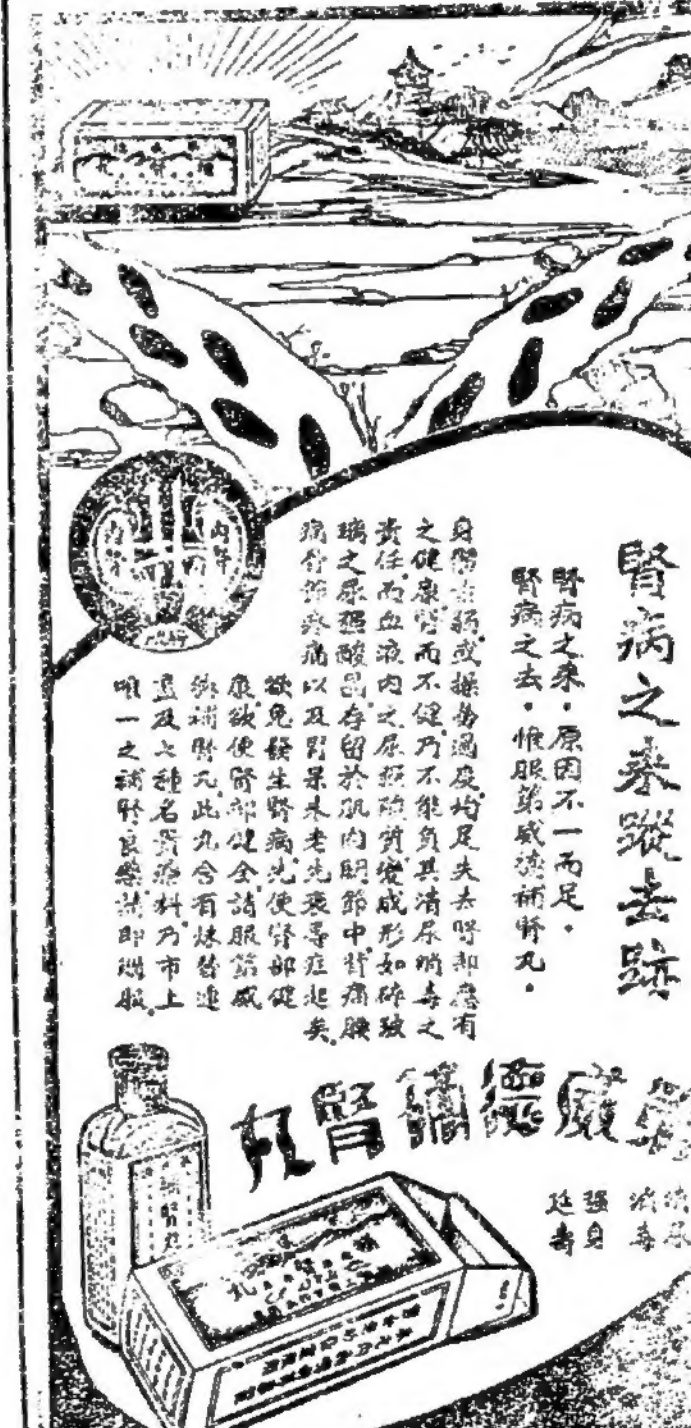 腎病之來蹤去跡
腎病之來·原因不一而足·
腎病之去·惟服第威德補腎丸·
身體虛弱·或操勞過度·均足失去腎部應有
之健康·腎而不健·乃不能負其清尿消毒之
責任·而血液內之尿酸質變成形如碎玻
璃之尿酸晶·存留於肌肉關節中·背痛腰
痛·骨節疼痛·以及腎呆·未老先衰等症起矣·
欲免發生腎病·先使腎部健
康·欲使腎部健全·請服第威
德補腎丸·此丸含有
及七種名貴藥料·乃市上
唯一之補腎良藥·請即購服·
第威德補腎丸
清尿
消毒
強身
延壽
內腎
內腎
補腎丸